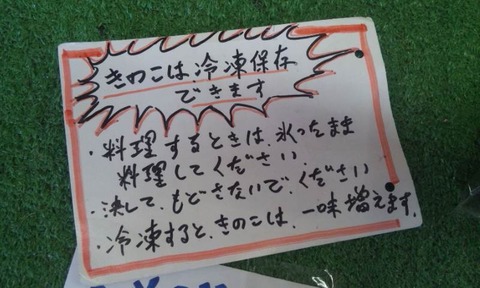 きのこは冷凍保存
できます
・料理するときは、氷ったまま
料理してください
・決して、もどさないで、ください
・冷凍すると、きのこは、一味増えます。